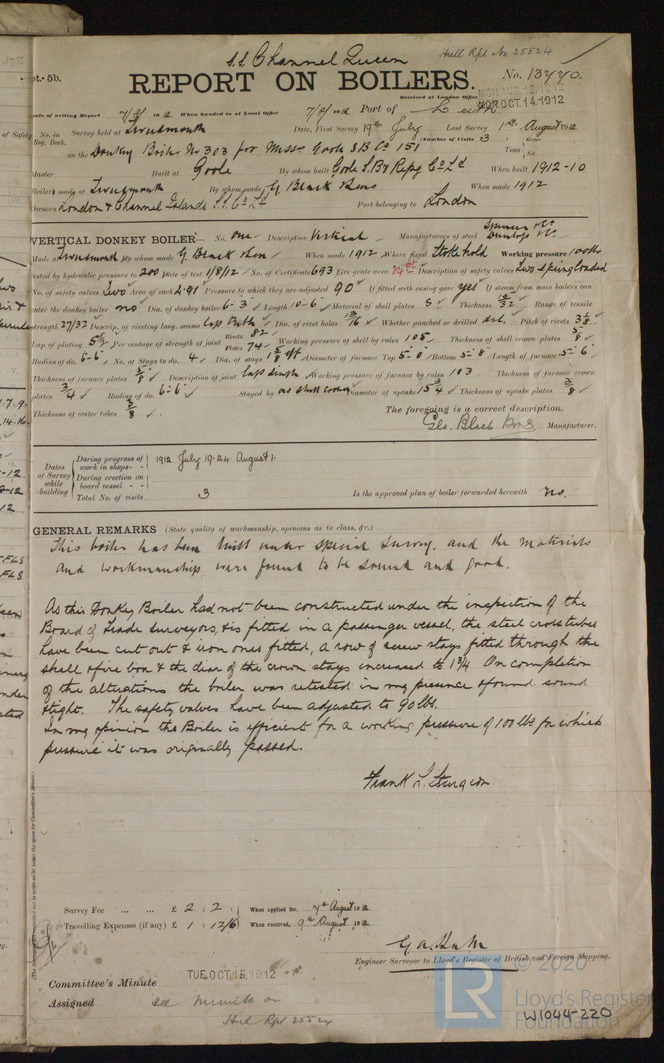 S.S. Channel Queen
Hull Rpt No 25524
ct.-5b.
REPORT ON BOILERS.
No. 13770.
Received at London Office
MON. OCT. 14. 1912
Date of writing Report 7/8/ 1912 When handed in at Local Office 7/8/ 1912 Port of Leith
No. in Reg. Book. Survey held at Tweedmouth Date, First Survey 19th July Last Survey 1st August 1912
Number of Visits 3
on the Donkey Boiler No 303 for Messrs Goole S.B. Co 151 Tons Gross Net
Master Built at Goole By whom built Goole S.B. & Repg Co Ld When built 1912-10
Boiler made at Tweedmouth By whom made G. Black & Sons When made 1912
Owners London & Channel Islands S.S. Co Ld Port belonging to London
VERTICAL DONKEY BOILER— No. One Description Vertical Manufacturers of steel
Made at Tweedmouth By whom made G. Black & Son When made 1912 Where fixed Stokehold Working pressure 100 lbs
tested by hydraulic pressure to 200 Date of test 1/8/12 No. of Certificate 693 Fire grate area Description of safety valves Two Spring loaded
No. of safety valves Two Area of each 4.91 Pressure to which they are adjusted 90 If fitted with easing gear yes If steam from main boilers can
enter the donkey boiler no Dia. of donkey boiler 6-3 Length 10-6 Material of shell plates S Thickness 13/32 Range of tensile
strength 27/32 Descrip. of riveting long. seams lap treble Dia. of rivet holes 13/16 Whether punched or drilled drl. Pitch of rivets
Lap of plating 5 1/2 Per centage of strength of joint Rivets 82 Plates 74 Working pressure of shell by rules 105 Thickness of shell crown plates 5/8
Radius of do. 6-6 No. of Stays to do. 4 Dia. of stays Diameter of furnace Top 5-0 Bottom 5-8 Length of furnace 5-6
Thickness of furnace plates 5/8 Description of joint lap single Working pressure of furnace by rules 103 Thickness of furnace crown
plates 3/4 Radius of do. 6-6 Stayed by as shell crown Diameter of uptake 15 3/4 Thickness of uptake plates 3/8
Thickness of water tubes 3/8
The foregoing is a correct description,
Geo. Black & Sons Manufacturer.
Dates of Survey while building
During progress of work in shops- - 1912 July 19. 24. August 1.
During erection on board vessel - - -
Total No. of visits 3 Is the approved plan of boiler forwarded herewith No.
GENERAL REMARKS (State quality of workmanship, opinions as to class, &c.)
This boiler has been built under special survey, and the materials
and workmanship were found to be sound and good.
As this Donkey Boiler had not been constructed under the inspection of the
Board of Trade surveyors, & is fitted in a passenger vessel, the steel cross tubes
have been cut out & iron ones fitted, a row of screw stays fitted through the
shell & fire box & the diar of the crown stays increased to 1 3/4. On completion
of the alterations the boiler was retested in my presence & found sound
& tight. The safety valves have been adjusted to 90 lbs.
In my opinion the Boiler is efficient for a working pressure of 100 lbs for which
pressure it was originally passed.
Frank L. Sturgeon.
Survey Fee ... ... £ 2 : 2 : When applied for, 7th August 1912
Travelling Expenses (if any) £ 1 : 12/6 When received, 9th August 1912
Engineer Surveyor to Lloyd's Register of British and Foreign Shipping.
Committee's Minute TUE. OCT. 15. 1912
Assigned See Minute on
Hull Rpt 25524
© 2020
LR
Lloyd's Register
Foundation
W1044-220